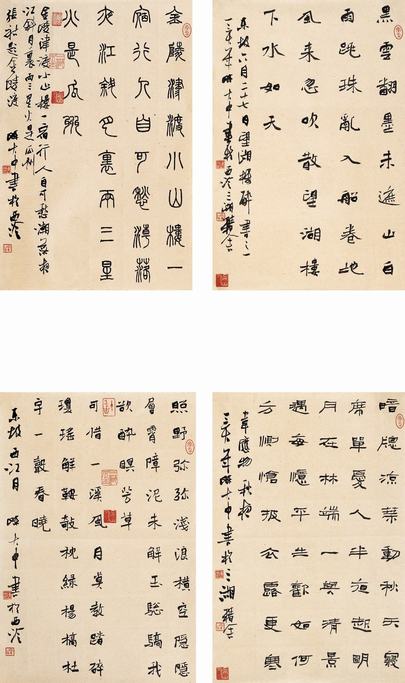 黑雲翻墨未遮山白
雨跳珠亂入船卷地
風來忽吹散望湖樓
下水如天
東坡六月二十七日望湖樓醉書之一
金陵津渡小山樓一
宿行人自可愁潮落
夜江斜月裏兩三星
火是瓜州
金陵津渡小山樓一宿行人自可愁潮落夜
江斜月裏兩三星火是瓜州
張祜題金陵渡 書於西泠
暗牖涼葉動秋天寢
席單憂人半夜起明
月在林端一與清景
遇每憶平生歡如何
方惻愴披衣露更寒
韋應物秋夜
照野弥弥淺浪橫空隱隱
層霄障泥未解玉驄驕我
欲醉瞑芳草
可惜一溪風月莫教踏碎
瓊瑤解鞍欹枕綠楊橋杜
宇一聲春曉
東坡西江月 書於西泠